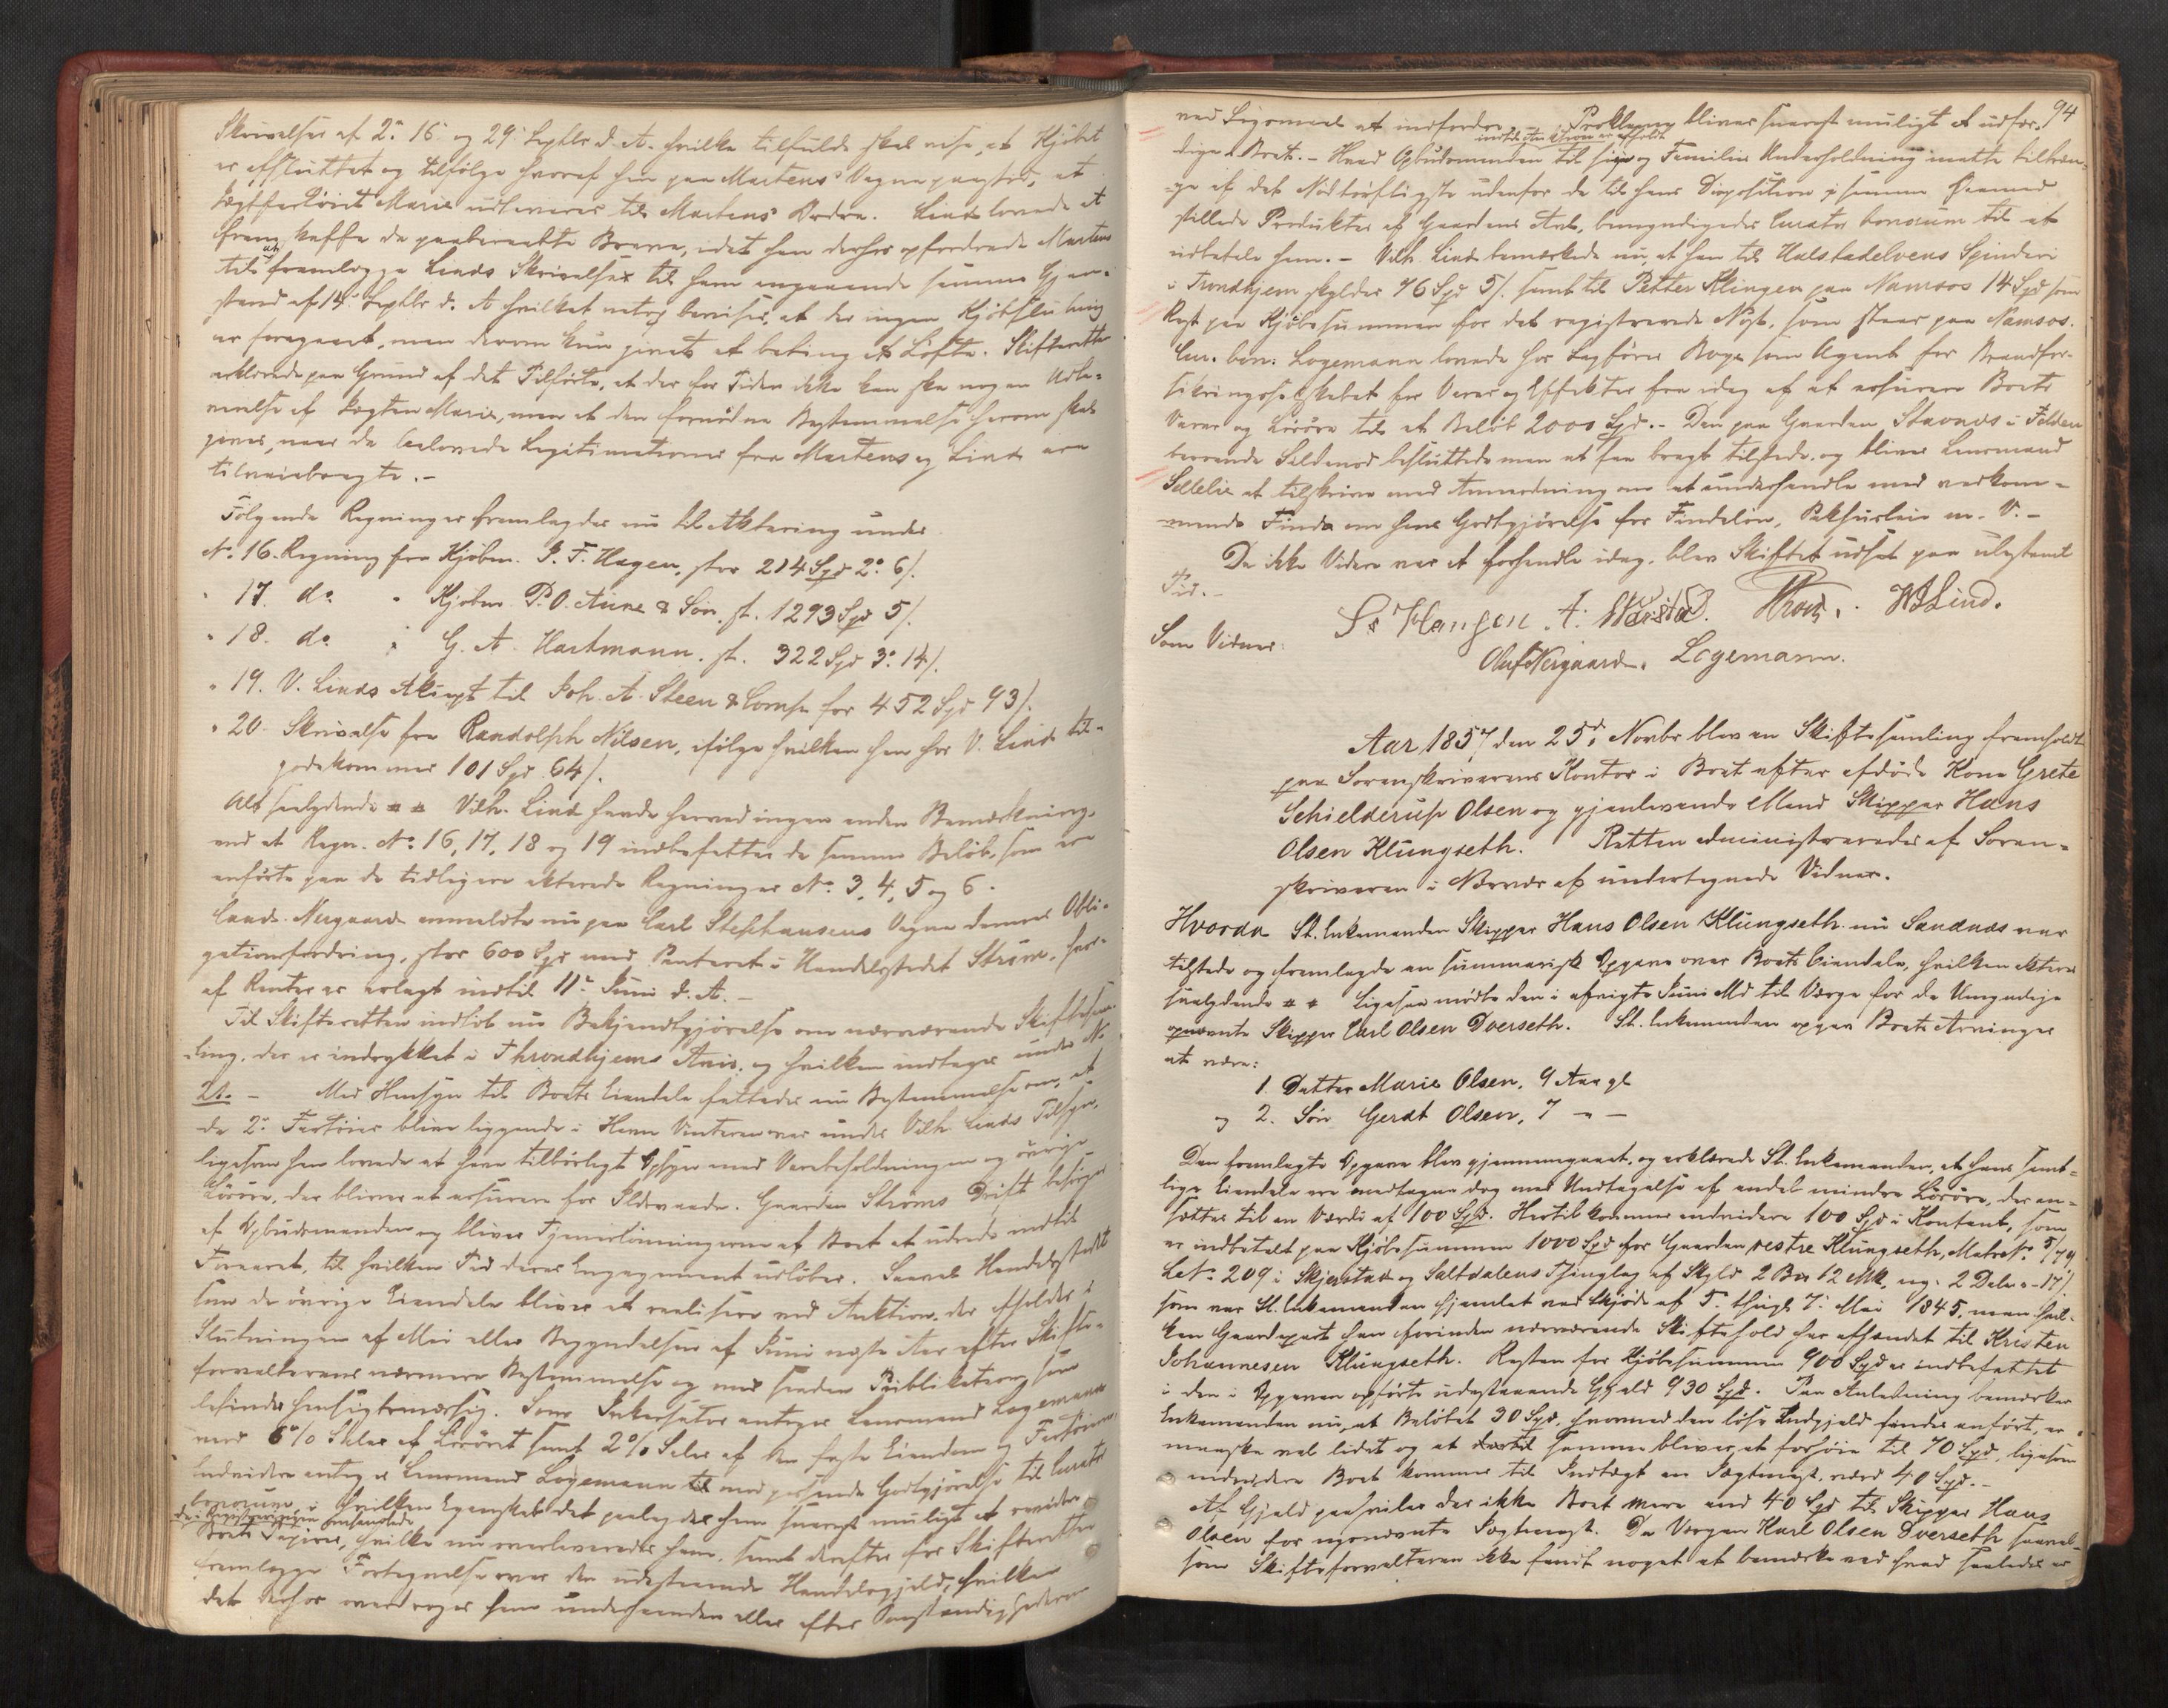 Skrivelser af 2. 16. og 29. Septbr d. A. hvilke tilfulde skal vise, at Kjöbet
er afsluttet og tilfölge hvoraf han paa Martens Vegne paastod, at
Jægtfartöiet Marie udleveres til Martens Ordre. Lind lovede at
fremskaffe de paaberaabte Breve, idet han derhos opfordrede Martens
til at fremlægge Linds Skrivelser til ham angaaende samme Gjen-
stand af 14. Septbr d. A. hvilket netop beviser, at der ingen Kjöbslutning
er foregaaet, men derom kun givet et beting et Löfte. Skifteretten
erklærede paa Grund af det Tilförte, at der for Tiden ikke kan ske nogen Udle-
verelse af Jægten Marie, men at den fornödne Bestemmelse herom skal
gives, naar de belovede Legitimationer fra Martens og Lind ere
tilveiebragte.-
Fölgende Regninger fremlagdes nu til Aktering under
No. 16. Regning fra Kjöbm. J. F. Hagen, stor 214 Spd 2. 6/.
" 17. do. " Kjöbm. P. O. Aune & Sön, st. 1293 Spd 5/.
" 18. do. " G. A. Hartmann. st. 322 Spd 3. 14/.
" 19. V. Linds Akcept til Joh. A. Steen & Comp. for 452 Spd 93/.
" 20. Skrivelse fra Randolph Nilsen, ifölge hvilken han hos V. Lind til-
godekommer 101 Spd 64/.
Alt saalydende # # Vilh. Lind havde herved ingen anden Bemærkning,
end at Regn. No. 16, 17, 18 og 19 indbefatter de samme Belöb, som ere
anförte paa de tidligere akterede Regninger No. 3, 4, 5 og 6.
Cand. Nergaard anmeldte nu paa Carl Stephansens Vegne dennes Obli-
gationsfordring, stor 600 Spd med Panteret i Handelsstedet Ström, hvor-
af Renter er erlagt indtil 11. Juni d. A. -
Til Skifteretten indlöb nu Bekjendtgjörelse om nærværende Skiftesam-
ling, der er indrykket i Throndhjems Avis, og hvilken indtages under No.
21. - Med Hensyn til Boets Eiendele fattedes nu Bestemmelse om, at
de 2. Fartöier blive liggende i Havn Vinteren over under Vilh. Linds Tilsyn,
ligesom han lovede at have tilbörligt Opsyn med Varebeholdningen og övrige
Lösöre, der bliver at assurere for Ildsvaade. Gaarden Ströms Drift besörges
af Opbudsmanden og bliver Tjenerlönningerne af Boet at udrede indtil
Foraaret, til hvilken Tid deres Engagement udlöber. Saavel Handelsstedet
som de övrige Eiendele bliver at realisere ved Auktion, der afholdes i
Slutningen af Mai eller Begyndelsen af Juni næste Aar efter Skifte-
forvalterens nærmere Bestemmelse og med saadan Publikation, som
befindes hensigtsmæssig. Som Inkassator antoges Lensmand Logemann
mod 6 % Salær af Lösöret samt 2 % Salær af den faste Eiendom og Fartöierne
Endvidere antoges Lensmand Logemann til mod passende Godtgjörelse til Curator
bonorum, i hvilken Egenskab det paalægdes ham snarest muligt at revidere
de i Registreringen omhandlede
Boets Papirer, hvilke nu overleveredes ham, samt derefter for Skifteretten
fremlægge Fortegnelse over den udestaaende Handelsgjeld, hvilken
det derhos overdroges ham underhaanden eller efter Omstændighederne
94
ved Lögsmaal at indfordre. Proklama bliver snarest muligt at udfær-
indtil Auktion er afholdt
dige i Boet. - Hvad Opbudsmanden til sin og Familiens Underholdning maatte tiltræn-
ge af det Nödtörftigste udenfor de til hans Disposition i samme Öiemed
stillede Produkter af Gaardens Avl, bemyndigedes Curator bonorum til at
udbetale ham. - Vilh. Lind bemærkede nu, at han til Halstadelvens Spinderi
i Trondhjem skylder 76 Spd 5/. samt til Petter Klingen paa Namsos 14 Spd som
Rest paa Kjöbesummen for det registrerede Nöst, som staar paa Namsos.
Cur. bon. Logemann lovede hos Sagförer Roge som Agent for Brandfor-
sikringsselskabet for Varer og Effekter fra idag af at assurere Boets
Varer og Lösöre til et Beløb 2000 Spd. - Den paa Gaarden Stavnes i Folden
beroende Sildenod besluttede man at faa bragt tilstede, og bliver Lensmand
Sellelie at tilskrive med Anmodning om at underhandle med vedkom-
mende Finder om hans Godtgjörelse for Findelön, Pakhusleie m. V. -
Da ikke Videre var at forhandle idag, blev Skiftet udsat paa ubestemt
Tid. -
A. Hroar. W Lind.
Som Vidner:
Oluf Nergaard. Logemann.
Aar 1857 den 25de Novbr blev en Skiftesamling fremholdt
paa Sorenskriverens Kontor i Boet efter afdöde Kone Grete
Schielderup Olsen og gjenlevende Mand Skipper Hans
Olsen Klungseth. Retten administreredes af Soren-
skriveren i Nærvær af undertegnede Vidner.
Hvorda St. Enkemanden Skipper Hans Olsen Klungseth nu Sandnæs var
tilstede og fremlagde en summarisk Opgave over Boets Eiendele, hvilken akteres
saalydende # # Ligesaa mödte den i afvigte Juni Md til Værge for de Umyndige
opnævnte Skipper Carl Olsen Dverseth. St. Enkemanden opgav Boets Arvinger
at være:
1. Datter Marie Olsen, 9 Aar gl.
og 2. Sön Gerdt Olsen, 7 - -
Den fremlagte Opgave blev gjennemgaaet, og erklærede St. Enkemanden, at hans samt-
lige Eiendele ere medtagne dog med Undtagelse af endel mindre Lösöre, der an-
sættes til en Værdi af 100 Spd. Hertil kommer endvidere 100 Spd i Kontant, som
er indbetalt paa Kjöbesummen 1000 Spd for Gaarden vestre Klungseth, Matr. No. 5/79
L. No. 209 i Skjerstad og Saltdalens Thinglag af Skyld 2 Bn 12 Mk, ny: 2 Daler "-17/
som var St. Enkemanden hjemlet ved Skjöde af 5. thingl. 7. Mai 1845, men hvil-
ken Gaardepart han forinden nærværende Skiftehold har afhændet til Kristen
Johannesen Klungseth. Resten for Kjöbesummen 900 Spd er indbefattet
i den i Opgaven opförte udestaaende Gjeld 930 Spd. Paa Anledning bemærker
Enkemanden nu, at Belöbet 30 Spd, hvormed den löse Indgjeld findes anfört, er
maaske vel lidet og at samme bliver at forhöie til 70 Spd, ligesom
endvidere Boet kommer til Indtægt en Jægtmast, værd 40 Spd. -
Af Gjeld paahviler der ikke Boet mere end 40 Spd til Skipper Hans
Olsen for nysnævnte Jægtmast. Da Værgen Karl Olsen Dverseth saavel-
som Skifteforvalteren ikke fandt noget at bemærke ved hvad saaledes er